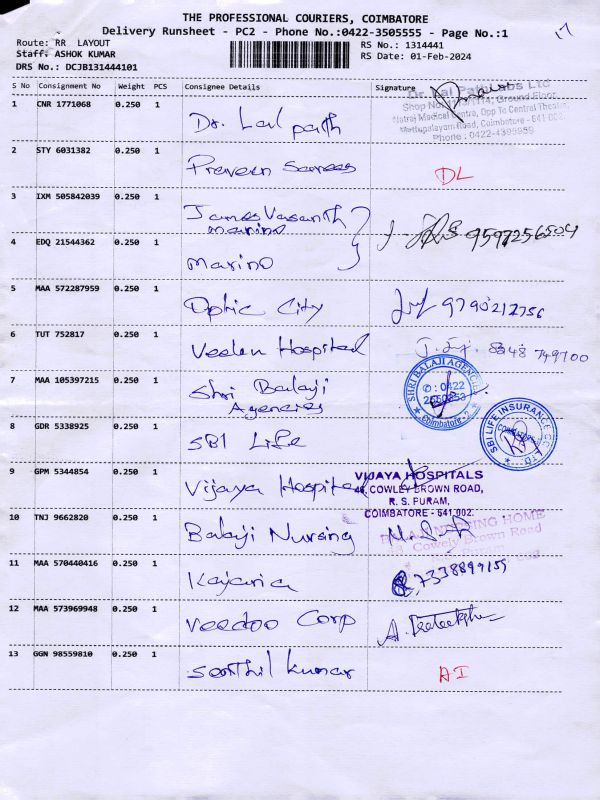 THE PROFESSIONAL COURIERS, COIMBATORE
Delivery Runsheet - PC2 - Phone No.:0422-3505555 - Page No.:1
Route: RR LAYOUT
Staff: ASHOK KUMAR
DRS No.: DCJB131444101
RS No.: 1314441
RS Date: 01-Feb-2024
S No Consignment No Weight PCS Consignee Details Signature
1 CNR 1771068 0.250 1 Dr. Lal path
Dr. Lal PathLabs Ltd
Ground Floor
Opp To Central Theater,
Mettupalayam Road, Coimbatore - 641 002.
Phone : 0422-4399959
2 STY 6031382 0.250 1 Praveen DL
3 IXM 505842039 0.250 1 James Vasanth
Marino
9597256504
4 EDQ 21544362 0.250 1 Marino
5 MAA 572287959 0.250 1 Optic City 9790212756
6 TUT 752817 0.250 1 Veelen Hospital 8848 749700
7 MAA 105397215 0.250 1 Shri Balaji
Agencies
SHRI BALAJI AGENCIES
✆ : 0422
Coimbatore - 2
8 GDR 5338925 0.250 1 SBI Life
SBI LIFE INSURANCE CO. LTD
9 GPM 5344854 0.250 1 Vijaya Hospital
VIJAYA HOSPITALS
COWLEY BROWN ROAD,
R. S. PURAM,
COIMBATORE - 641 002.
10 TNJ 9662820 0.250 1 Balaji Nursing
NURSING HOME
Cowely Brown Road
11 MAA 570440416 0.250 1 Kajaria 7338899155
12 MAA 573969948 0.250 1 Veedoo Corp
13 GGN 98559810 0.250 1 Senthil kumar AI